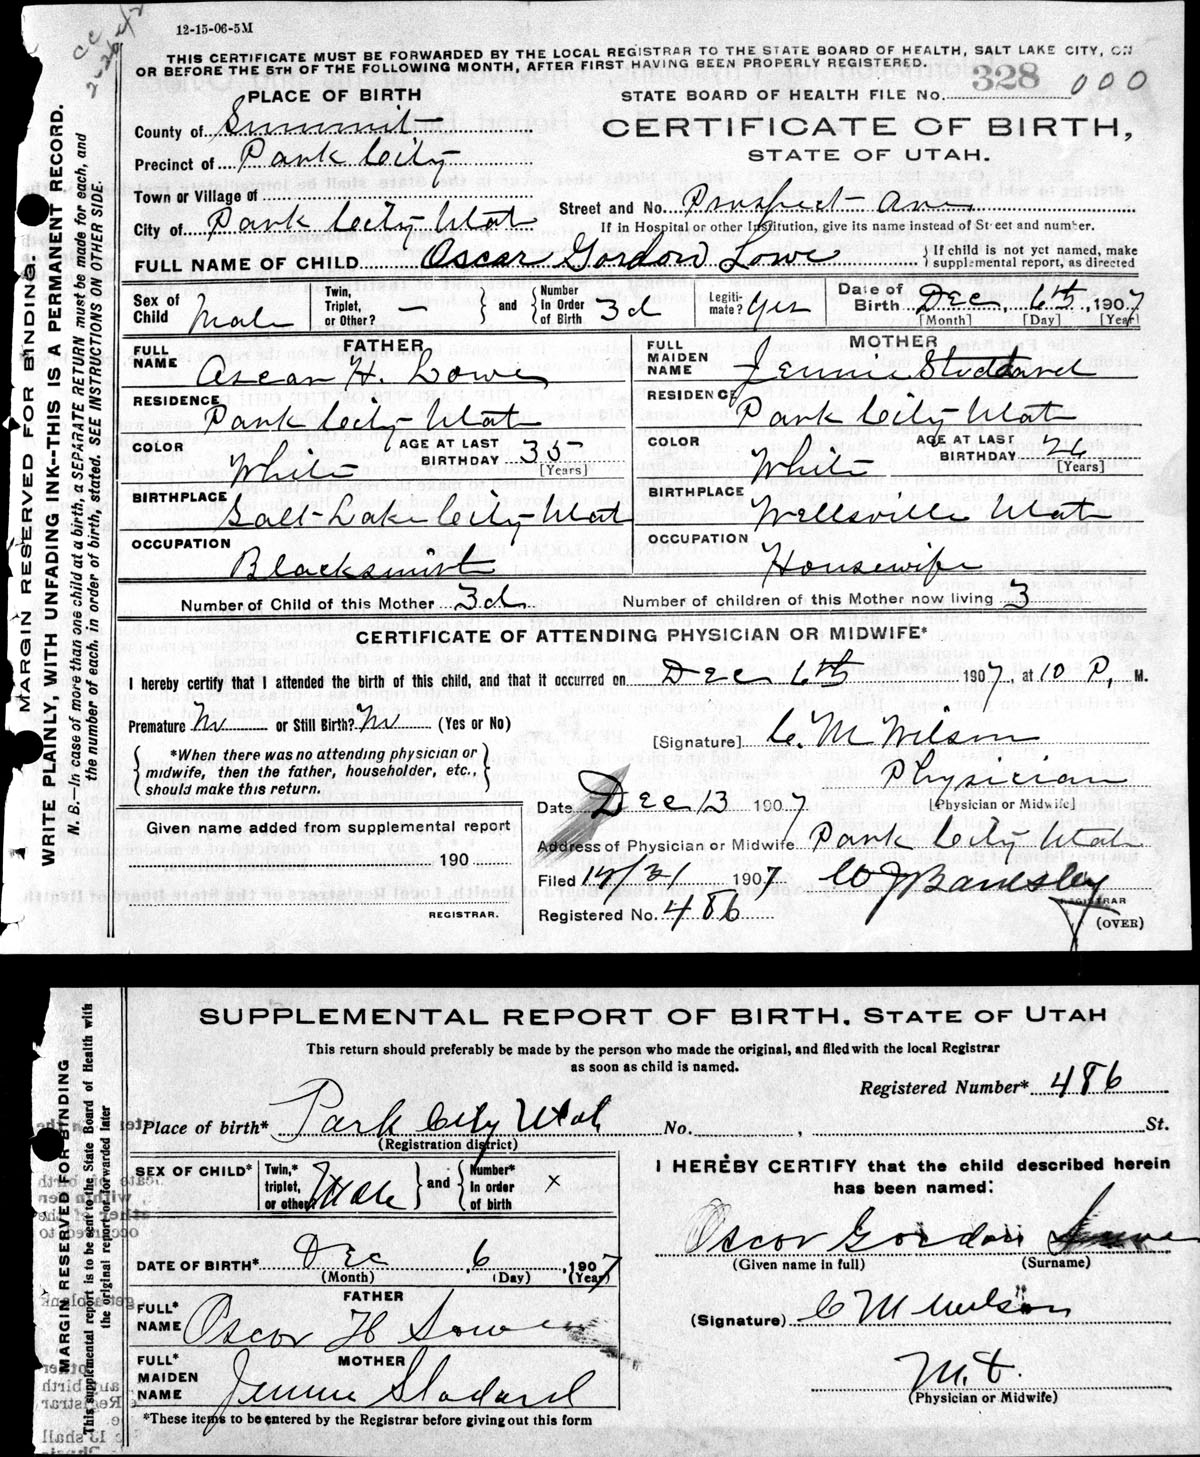 cc
2-26-42
12-15-06-5M
THIS CERTIFICATE MUST BE FORWARDED BY THE LOCAL REGISTRAR TO THE STATE BOARD OF HEALTH, SALT LAKE CITY, ON
OR BEFORE THE 5TH OF THE FOLLOWING MONTH, AFTER FIRST HAVING BEEN PROPERLY REGISTERED.
328 000
PLACE OF BIRTH
STATE BOARD OF HEALTH FILE No.
County of Summit
CERTIFICATE OF BIRTH,
Precinct of Park City
STATE OF UTAH.
Town or Village of
City of Park City Utah
Street and No. Prospect Ave
If in Hospital or other Institution, give its name instead of Street and number.
FULL NAME OF CHILD Oscar Gordon Lowe
If child is not yet named, make
supplemental report, as directed
Sex of Child Male
Twin, Triplet, or Other? —
and Number In Order of Birth 3d
Legitimate? Yes
Date of Birth Dec 6th, 1907
[Month] [Day] [Year]
FATHER
FULL NAME Oscar H. Lowe
RESIDENCE Park City Utah
COLOR White
AGE AT LAST BIRTHDAY 35
[Years]
BIRTHPLACE Salt Lake City Utah
OCCUPATION Blacksmith
MOTHER
FULL MAIDEN NAME Jennie Stoddard
RESIDENCE Park City Utah
COLOR White
AGE AT LAST BIRTHDAY 26
[Years]
BIRTHPLACE Wellsville Utah
OCCUPATION Housewife
Number of Child of this Mother 3d
Number of children of this Mother now living 3
CERTIFICATE OF ATTENDING PHYSICIAN OR MIDWIFE*
I hereby certify that I attended the birth of this child, and that it occurred on Dec 6th 1907, at 10 P. M.
Premature No or Still Birth? No (Yes or No)
*When there was no attending physician or
midwife, then the father, householder, etc.,
should make this return.
[Signature] C. M Wilson
Physician
[Physician or Midwife]
Date Dec 13 1907
Address of Physician or Midwife Park City Utah
Filed 12/31 1907 W J Bardsley
REGISTRAR
Registered No. 486
(OVER)
Given name added from supplemental report
190
REGISTRAR.
MARGIN RESERVED FOR BINDING.
WRITE PLAINLY, WITH UNFADING INK--THIS IS A PERMANENT RECORD.
N. B.—In case of more than one child at a birth, a SEPARATE RETURN must be made for each, and
the number of each, in order of birth, stated. SEE INSTRUCTIONS ON OTHER SIDE.
SUPPLEMENTAL REPORT OF BIRTH. STATE OF UTAH
This return should preferably be made by the person who made the original, and filed with the local Registrar
as soon as child is named.
Registered Number* 486
Place of birth* Park City Utah No. , St.
(Registration district)
SEX OF CHILD*
Twin,* triplet, or other Male
and Number* In order of birth x
DATE OF BIRTH* Dec, 6, 1907
(Month) (Day) (Year)
FATHER
FULL* NAME Oscor H Lowe
MOTHER
FULL* MAIDEN NAME Jennie Stodard
*These items to be entered by the Registrar before giving out this form
I HEREBY CERTIFY that the child described herein
has been named:
Oscor Gordon Lowe
(Given name in full) (Surname)
(Signature) C M Wilson
M.D.
(Physician or Midwife)
MARGIN RESERVED FOR BINDING
This supplemental report is to be sent to the State Board of Health with
the original report or forwarded later